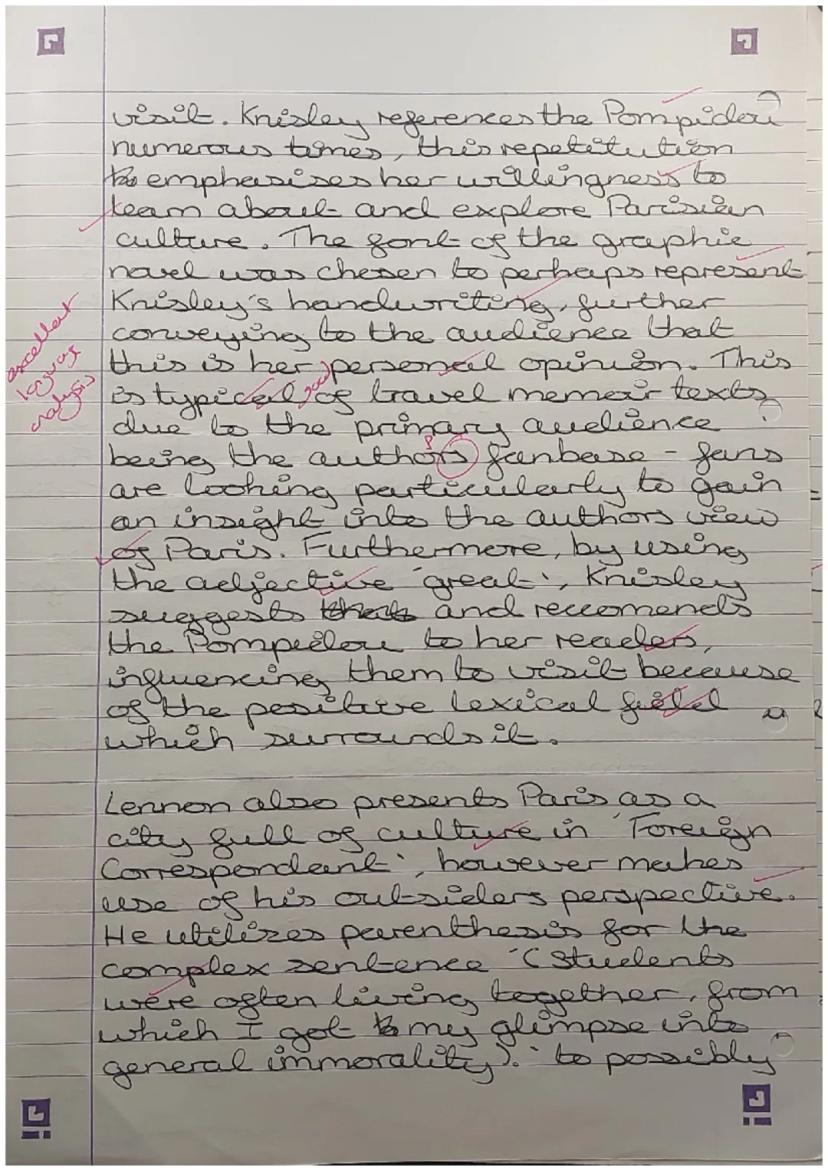 visit. Knisley references the Pompidou
numerous times, this repetitution
to emphasises her willingness to
learn about and explore Parisian
culture. The font of the graphic
novel was chosen to perhaps represent
Knisley's handwriting, further
conveying to the audience that
this is her personal opinion. This
is typical of travel memoir texts
due to the primary audience
being the authors fanbase - fans
are looking particularly to gain
an insight into the authors view
of Paris. Furthermore, by using
the adjective 'great', Knisley
suggests that and reccomends
the Pompidou to her readers,
influencing them to visit because
of the positive lexical field
which surrounds it.
Lennon also presents Paris as a
city full of culture in 'Foreign
Correspondent', however makes
use of his outsiders perspective.
He utilizes parenthesis for the
complex sentence '(Students
were often living together, from
which I got my glimpse into
general immorality).' to possibly
excellent
language
analysis
good